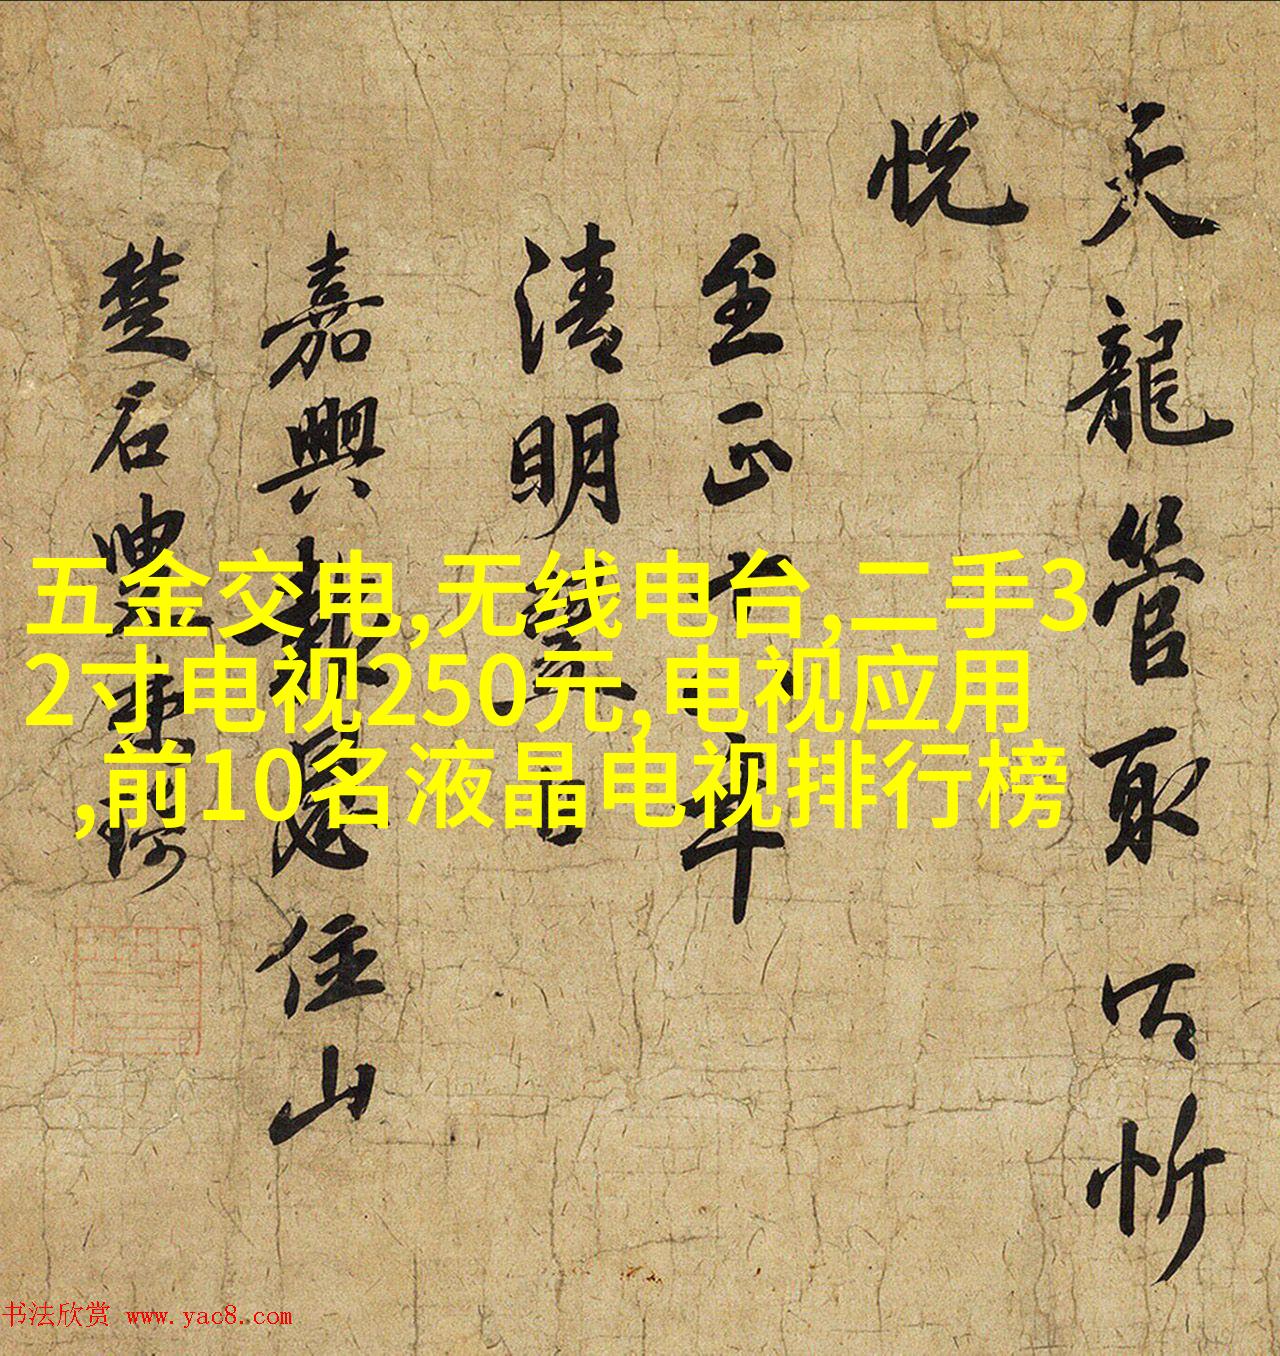 天龍管取忻
悅
至正年
清明日
嘉興報恩住山
楚石
五金交电,无线电台,二手3
2寸电视250元,电视应用
,前10名液晶电视排行榜
书法欣赏 www.yac8.com